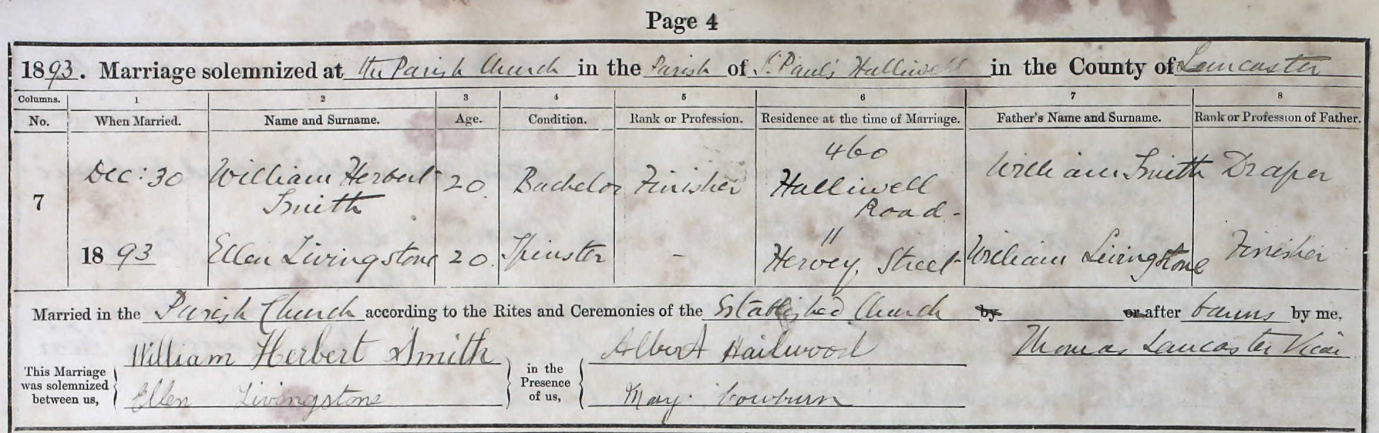 Page 4
1893. Marriage solemnized at the Parish Church in the Parish of St. Paul's Halliwell in the County of Lancaster
Columns. 1 2 3 4 5 6 7 8
No. When Married. Name and Surname. Age. Condition. Rank or Profession. Residence at the time of Marriage. Father's Name and Surname. Rank or Profession of Father.
7
Dec: 30
1893
William Herbert
Smith
20
Bachelor
Finisher
460
Halliwell
Road -
William Smith
Draper
Ellen Livingstone
20.
Spinster
-
11
Hervey Street
William Livingstone
Finisher
Married in the Parish Church according to the Rites and Ceremonies of the Established Church by or after banns by me,
This Marriage
was solemnized
between us,
William Herbert Smith
Ellen Livingstone
in the
Presence
of us,
Albert Hailwood
Mary Cowburn
Thomas Lancaster Vicar